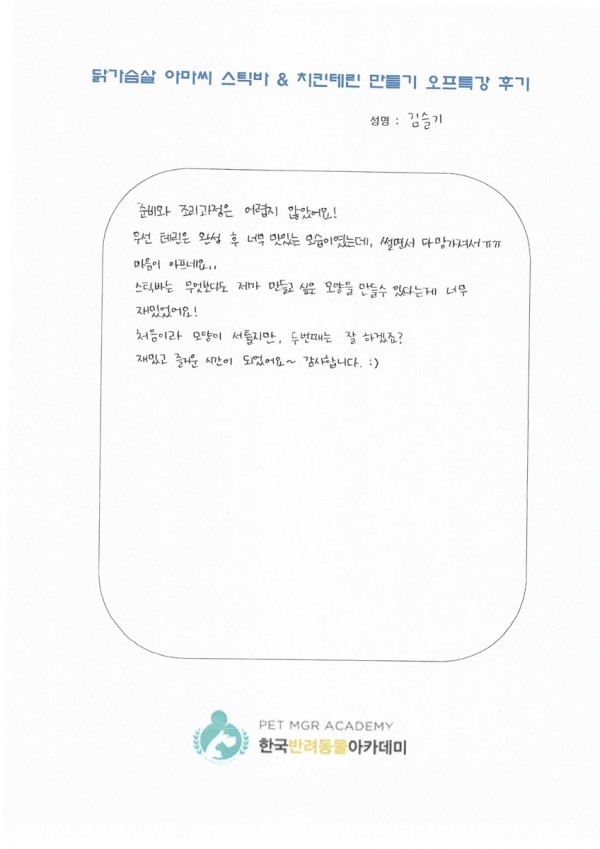 닭가슴살 아마씨 스틱바 & 치킨테린 만들기 오프특강 후기
성명 : 김슬기
준비와 조리과정은 어렵지 않았어요!
우선 테린은 완성 후 너무 맛있는 모습이였는데, 썰면서 다 망가져서 ㅠㅠ
마음이 아프네요..
스틱바는 무엇보다도 제가 만들고 싶은 모양을 만들수 있다는게 너무
재밌었어요!
처음이라 모양이 서툴지만, 두번째는 잘 하겠죠?
재밌고 즐거운 시간이 되었어요~ 감사합니다. :)
PET MGR ACADEMY
한국반려동물아카데미